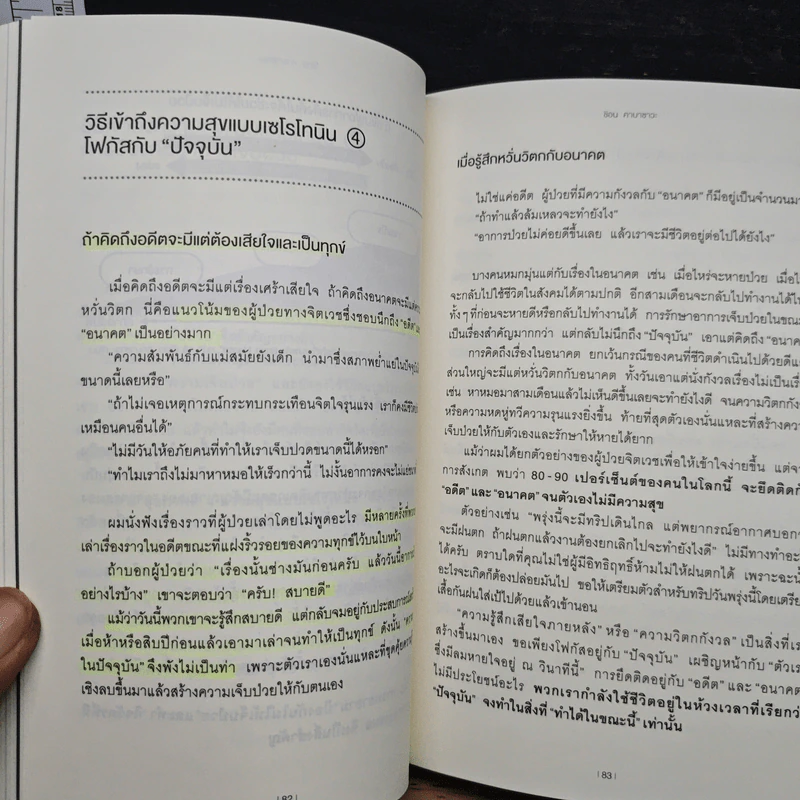 วิธีเข้าถึงความสุขแบบเซโรโทนิน ④
โฟกัสกับ “ปัจจุบัน”
ถ้าคิดถึงอดีตจะมีแต่ต้องเสียใจและเป็นทุกข์
เมื่อคิดถึงอดีตจะมีแต่เรื่องเศร้าเสียใจ ถ้าคิดถึงอนาคตจะมีแต่
หวั่นวิตก นี่คือแนวโน้มของผู้ป่วยทางจิตเวชซึ่งชอบนึกถึง “อดีต”
“อนาคต” เป็นอย่างมาก
“ความสัมพันธ์กับแม่สมัยยังเด็ก นำมาซึ่งสภาพย่ำแย่ในปัจจุบัน
ขนาดนี้เลยหรือ”
“ถ้าไม่เจอเหตุการณ์กระทบกระเทือนจิตใจรุนแรง เราก็คงมีชีวิต
เหมือนคนอื่นได้”
“ไม่มีวันให้อภัยคนที่ทำให้เราเจ็บปวดขนาดนี้ได้หรอก”
“ทำไมเราถึงไม่มาหาหมอให้เร็วกว่านี้ ไม่งั้นอาการคงจะไม่แย่
ผมนั่งฟังเรื่องราวที่ผู้ป่วยเล่าโดยไม่พูดอะไร มีหลายครั้งที่
เล่าเรื่องราวในอดีตขณะที่แฝงริ้วรอยของความทุกข์ไว้บนใบหน้า
ถ้าบอกผู้ป่วยว่า “เรื่องนั้นช่างมันก่อนครับ แล้ววันนี้อาการ
อย่างไรบ้าง” เขาจะตอบว่า “ครับ! สบายดี”
แม้ว่าวันนี้พวกเขาจะรู้สึกสบายดี แต่กลับจมอยู่กับประสบการณ์
เมื่อห้าหรือสิบปีก่อนแล้วเอามาเล่าจนทำให้เป็นทุกข์ ดังนั้น
ในปัจจุบัน” จึงพังไม่เป็นท่า เพราะตัวเราเองนั่นแหละที่ขุดคุ้ย
เชิงลบขึ้นมาแล้วสร้างความเจ็บป่วยให้กับตนเอง
| 82 |
ชิอน คาบาซาวะ
เมื่อรู้สึกหวั่นวิตกกับอนาคต
ไม่ใช่แค่อดีต ผู้ป่วยที่มีความกังวลกับ “อนาคต” ก็มีอยู่เป็นจำนวน
“ถ้าทำแล้วล้มเหลวจะทำยังไง”
“อาการป่วยไม่ค่อยดีขึ้นเลย แล้วเราจะมีชีวิตอยู่ต่อไปได้ยังไง”
บางคนหมกมุ่นแต่กับเรื่องในอนาคต เช่น เมื่อไหร่จะหายป่วย
จะกลับไปใช้ชีวิตในสังคมได้ตามปกติ อีกสามเดือนจะกลับไปทำงานได้
ทั้งๆ ที่ก่อนจะหายดีหรือกลับไปทำงานได้ การรักษาอาการเจ็บป่วยในขณะ
เป็นเรื่องสำคัญมากกว่า แต่กลับไม่นึกถึง “ปัจจุบัน” เอาแต่คิดถึง
การคิดถึงเรื่องในอนาคต ยกเว้นกรณีของคนที่ชีวิตดำเนินไปด้วยดี
ส่วนใหญ่จะมีแต่หวั่นวิตกกับอนาคต ทั้งวันเอาแต่นั่งกังวลเรื่องไม่เป็น
เช่น หาหมอมาสามเดือนแล้วไม่เห็นดีขึ้นเลยจะทำยังไงดี จนความวิตก
หรือความหดหู่ทวีความรุนแรงยิ่งขึ้น ท้ายที่สุดตัวเองนั่นแหละที่สร้าง
เจ็บป่วยให้กับตัวเองและรักษาให้หายได้ยาก
แม้ว่าผมได้ยกตัวอย่างของผู้ป่วยจิตเวชเพื่อให้เข้าใจง่ายขึ้น แต่
การสังเกต พบว่า 80-90 เปอร์เซ็นต์ของคนในโลกนี้ จะยึดติด
“อดีต” และ “อนาคต” จนตัวเองไม่มีความสุข
ตัวอย่างเช่น “พรุ่งนี้จะมีทริปเดินไกล แต่พยากรณ์อากาศบอก
จะมีฝนตก ถ้าฝนตกแล้วงานต้องยกเลิกไปจะทำยังไงดี” ไม่มีทางทำ
ได้ครับ ตราบใดที่คุณไม่ใช่ผู้มีอิทธิฤทธิ์ห้ามไม่ให้ฝนตกได้ เพราะฉะนั้น
อะไรจะเกิดก็ต้องปล่อยมันไป ขอให้เตรียมตัวสำหรับทริปวันพรุ่งนี้โดย
เสื้อกันฝนใส่เป้ไปด้วยแล้วเข้านอน
“ความรู้สึกเสียใจภายหลัง” หรือ “ความวิตกกังวล” เป็นสิ่งที่
สร้างขึ้นมาเอง ขอเพียงโฟกัสอยู่กับ “ปัจจุบัน” เผชิญหน้ากับ “ตัว
ซึ่งมีลมหายใจอยู่ ณ วินาทีนี้” การยึดติดอยู่กับ “อดีต” และ
ไม่มีประโยชน์อะไร พวกเรากำลังใช้ชีวิตอยู่ในห้วงเวลาที่เรียก
“ปัจจุบัน” จงทำในสิ่งที่ “ทำได้ในขณะนี้” เท่านั้น
| 83 |